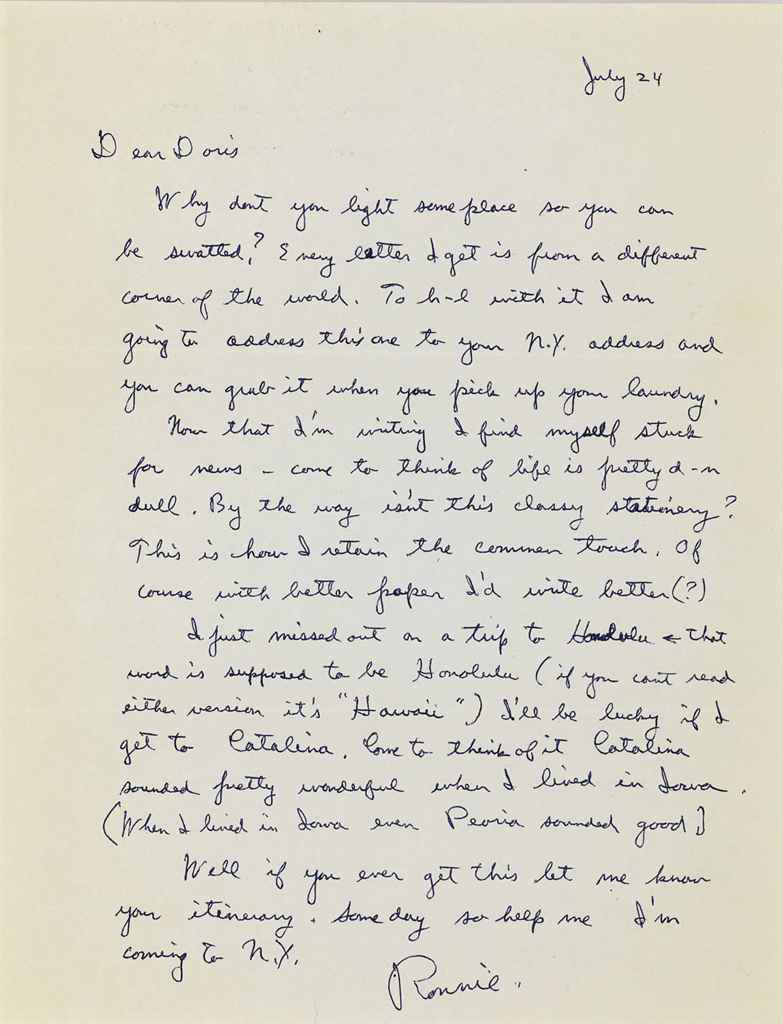 July 24
Dear Doris
Why dont you light someplace so you can
be swatted,? Every letter I get is from a different
corner of the world. To h-l with it I am
going to address this one to your N.Y. address and
you can grab it when you pick up your laundry.
Now that I'm writing I find myself stuck
for news – come to think of life is pretty d-n
dull. By the way isn't this classy stationery?
This is how I retain the common touch. Of
course with better paper I'd write better (?)
I just missed out on a trip to Honolulu ← that
word is supposed to be Honolulu (if you cant read
either version it's "Hawaii") I'll be lucky if I
get to Catalina. Come to think of it Catalina
sounded pretty wonderful when I lived in Iowa.
(When I lived in Iowa even Peoria sounded good)
Well if you ever get this let me know
your itinerary. Some day so help me I'm
coming to N.Y.
Ronnie.